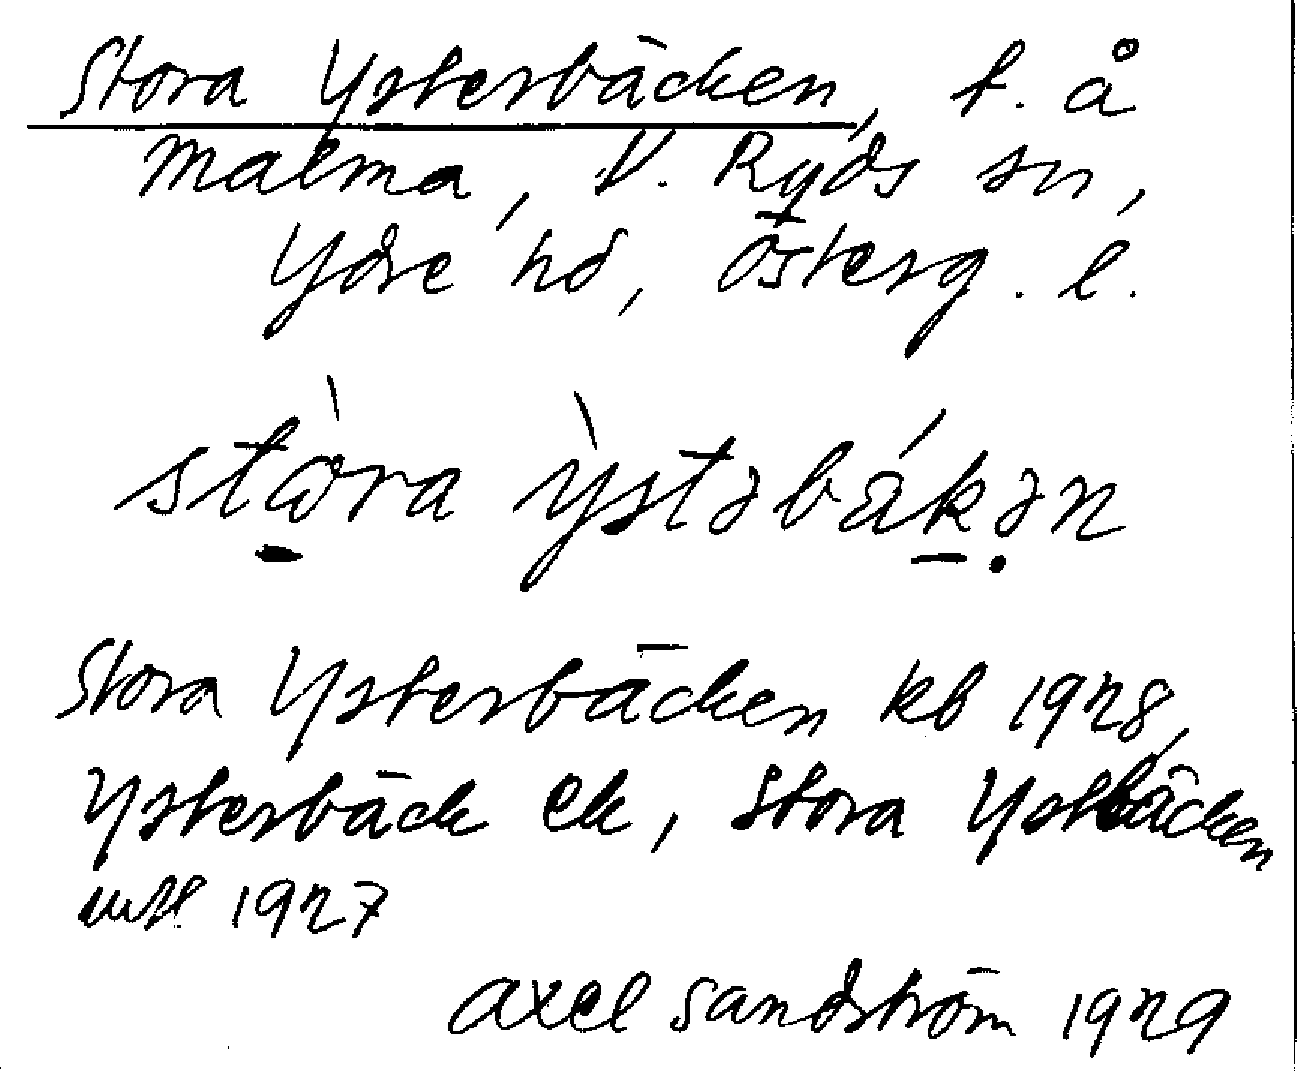 Stora Ysterbäcken, t. å
Malma, V. Ryds sn,
Ydre hd, Österg. l.
stὼra ỳstəbákən
Stora Ysterbäcken kb 1928,
Ysterbäck ek, Stora Ystbäcken
mtl 1927
Axel Sandström 1929